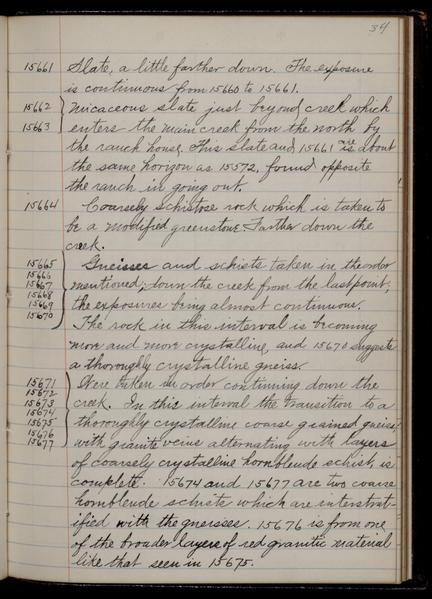 34
15661 Slate, a little farther down. The exposure
is continuous from 15660 to 15661.
15662 } micaceous slate just beyond creek which
15663 } enters the main creek from the north by
the ranch house. This slate and 15661 are is about
the same horizon as 15572, found opposite
the ranch in going out.
15664 Coarsely schistose rock which is taken to
be a modified greenstone. Farther down the
creek.
15665 Gneisses and schists taken in the order
15666
15667 mentioned, down the creek from the last point,
15668
15669 the exposures being almost continuous.
15670
The rock in this interval is becoming
more and more crystalline, and 15670 suggests
a thoroughly crystalline gneiss.
15671 Were taken in order continuing down the
15672
15673 creek. In this interval the transition to a
15674
15675 thoroughly crystalline coarse grained gneiss
15676
15677 with granite veins alternating with layers
of coarsely crystalline hornblende schist, is
complete. 15674 and 15677 are two coarse
hornblende schists which are interstrat-
ified with the gneisses. 15676 is from one
of the broader layers of red granitic material
like that seen in 15675.